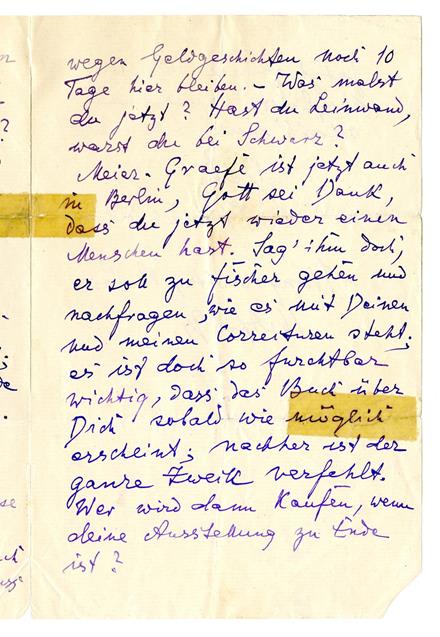 wegen Geldgeschichten noch 10
Tage hier bleiben. – Was malst
du jetzt? Hast du Leinwand,
warst du bei Schwarz?
Meier-Graefe ist jetzt auch
in Berlin, Gott sei Dank,
dass du jetzt wieder einen
Menschen hast. Sag' ihm doch,
er soll zu Fischer gehen und
nachfragen, wie es mit Deinen
und meinen Correcturen steht;
es ist doch so furchtbar
wichtig, dass das Buch über
Dich sobald wie möglich
erscheint; nachher ist der
ganze Zweck verfehlt.
Wer wird dann kaufen, wenn
deine Ausstellung zu Ende
ist?